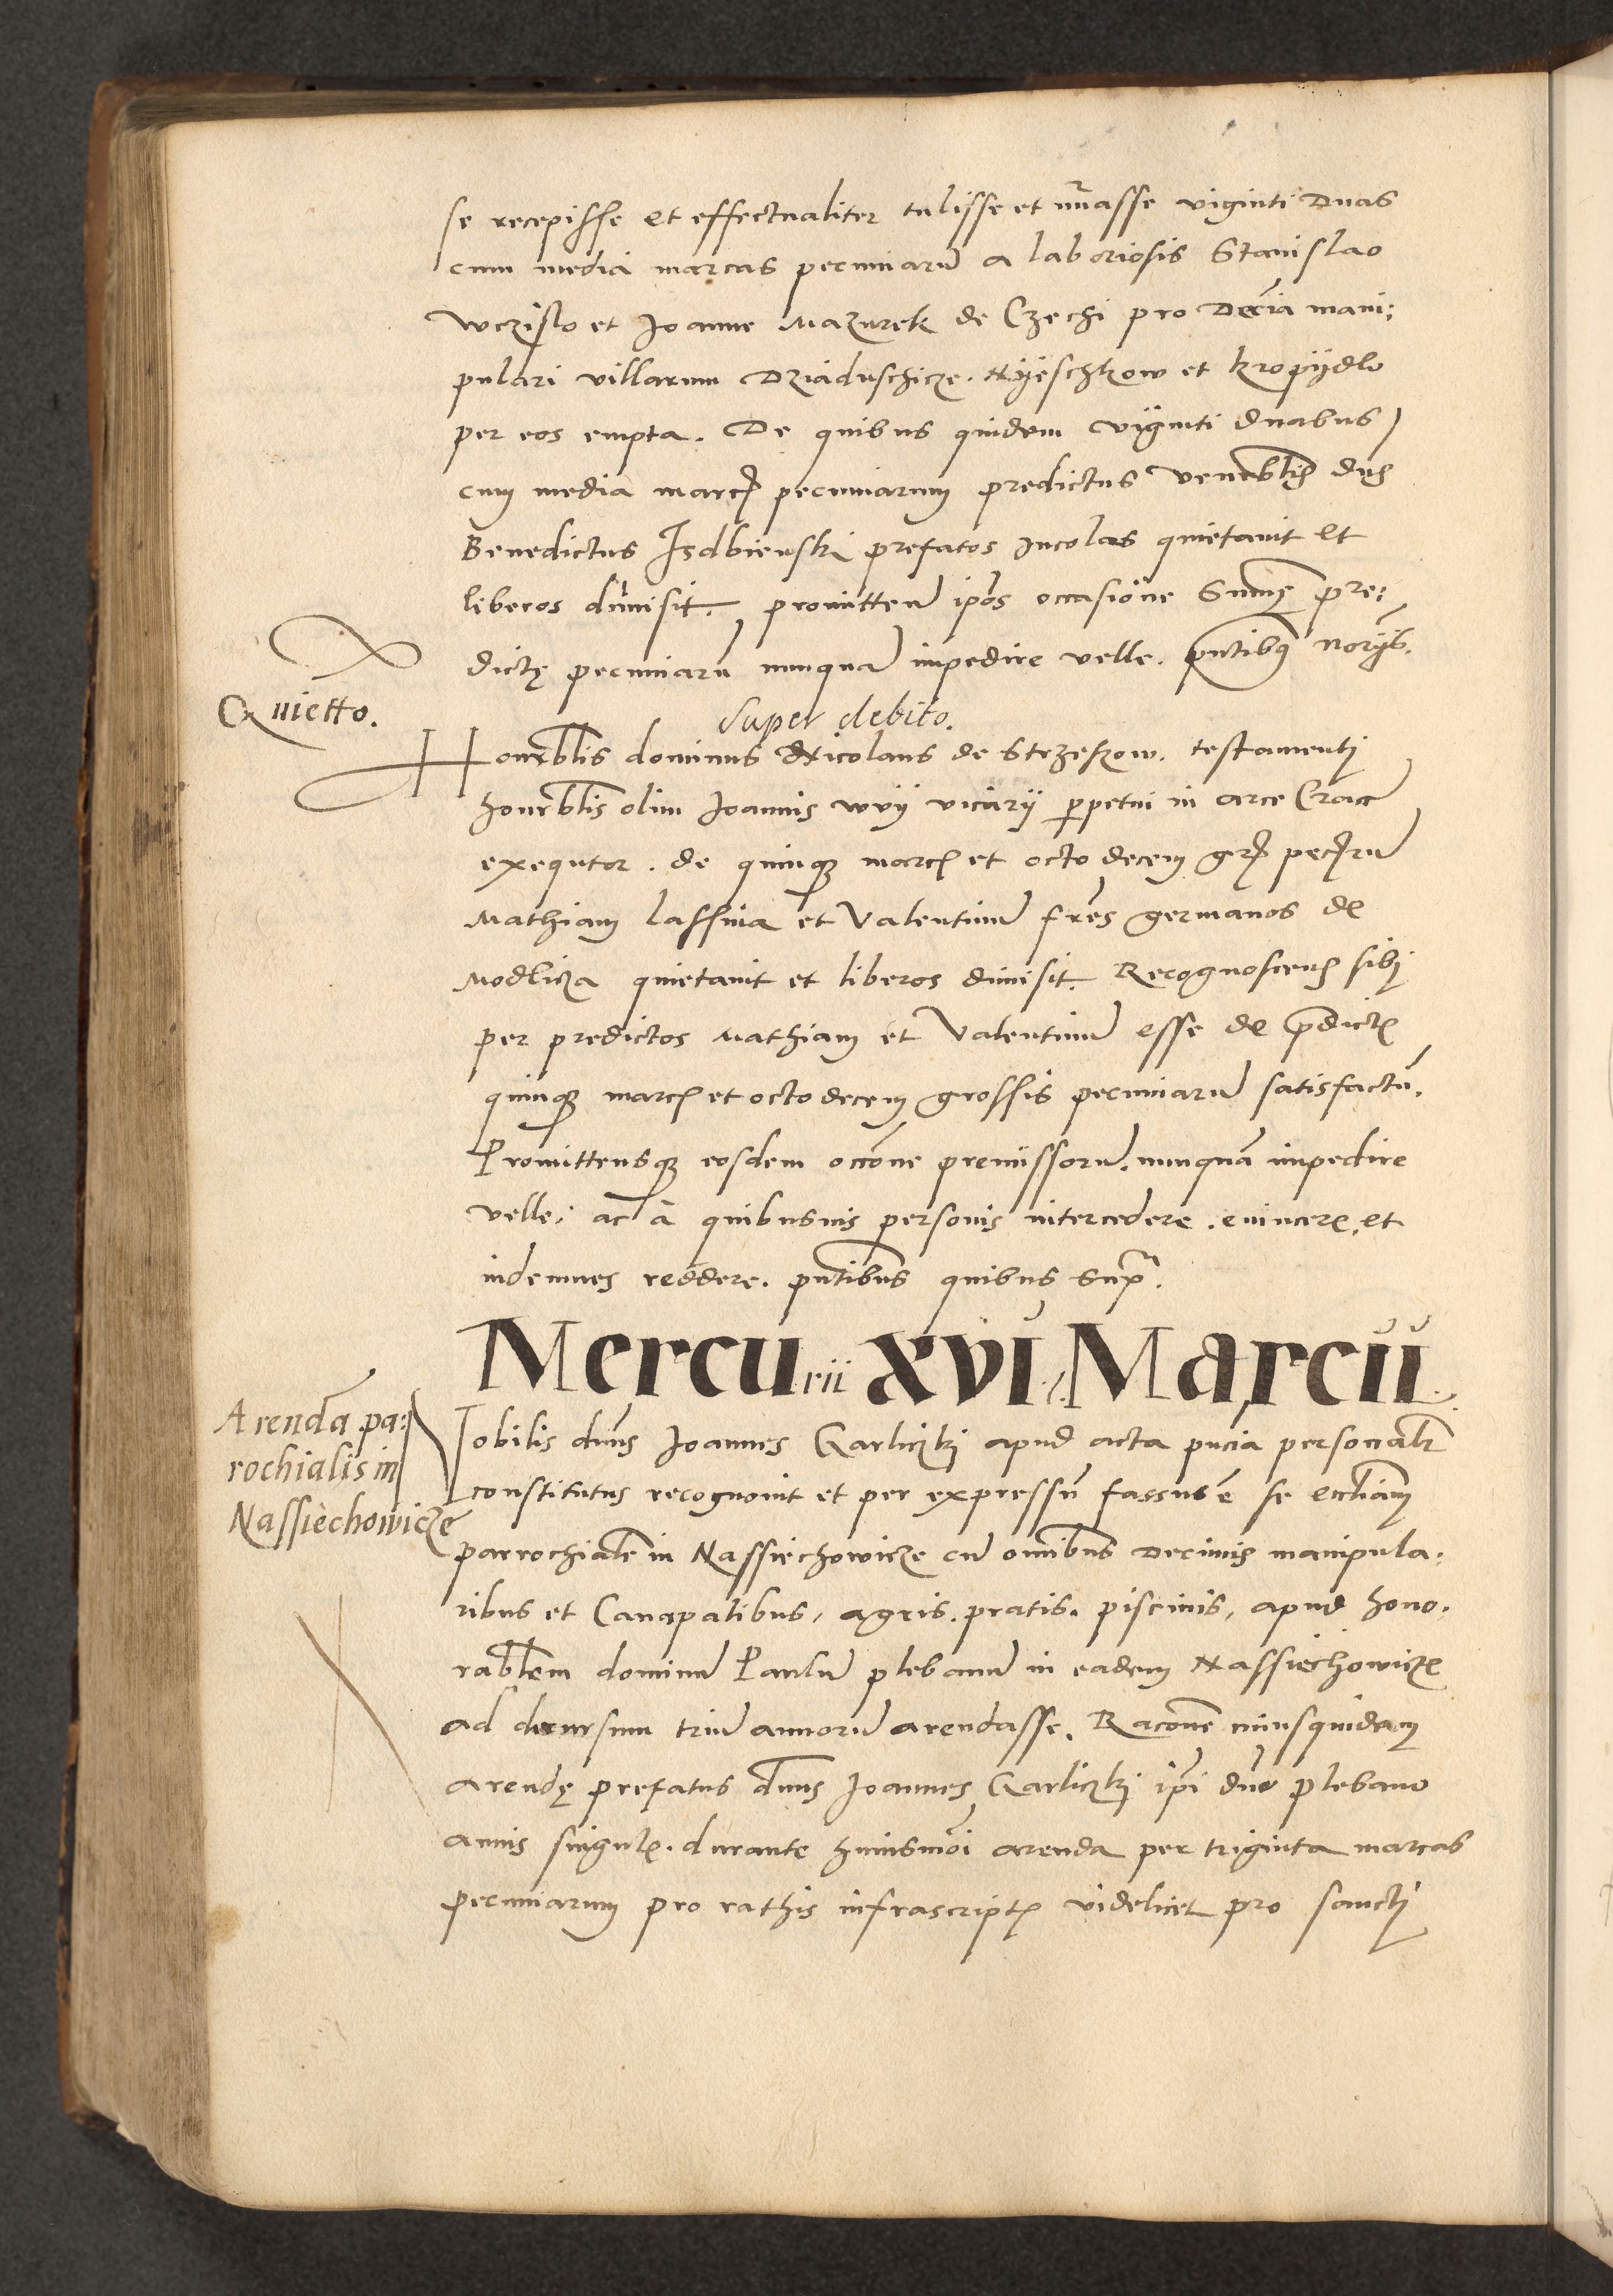 se recepisse et effectualiter tulisse et nũasse viginti duas
cum media marcas pecuniarũ a laboriosis Stanislao
Wczislo et Joanne Mazurek de Czechi pro decĩa mani:
pulari villarum Dziaduschicze. Nÿeschkow et Kropÿdlo
per eos empta. De quibus quidem viginti duabus
cum media marcis pecuniarum predictus venerblis dns
Benedictus Isdbienski prefatos incolas quietavit et
liberos dimisit. promittens ip̃os occasione Sum̃ę pre:
dictę pecuniarũ nunquã impedire velle. pñtibus
Quietto.
Super debito.
Honorblis dominus Nicolaus de Strzeszow. testamenti
honorblis olim Joannis wvy vicarii perpetui in arce Cracc
exequtor. de quinque marcis et octo decem gris pecr̃ũ
Mathiam lassina et Valentinũ fr̃es germanos de
Modlicza quietavit et liberos dimisit. Recognoscens sibi
per predictos Mathiam et Valentinũ esse de p̃dictis
quinque marcis et octo decem grossis pecuniarũ satisfactũ.
Promittensque eosdem occõne premissorũ. nunquã impedire
velle: ac à quibusvis personis intercedere. evincere. et
indemnes reddere. pñtibus quibus Supra.
Mercurii xvi Marcii.
Arenda pa:
rochialis in
Nassiechowicze
Nobilis dñus Joannes Garliczki apud acta pñcia personalr̃
constitutus recognovit et per expressũ fassus ẽ se eccliam
parrochialẽ in Nassiechowicze cũ omnibus decimis manipula:
ribus et Canapalibus, agris. pratis. piscinis, apud hono:
rablem dominũ Paulũ plebanũ in eadem Nassiechowicze
ad decursum triũ annorũ arendasse. Racõne cuiusquidem
arendę prefatus dñus Joannes Garliczki ip̃i dño plebano
annis singulis. durante huiusmõi arenda per triginta marcas
pecuniarum pro rathis infrascriptis videlicet pro sancti